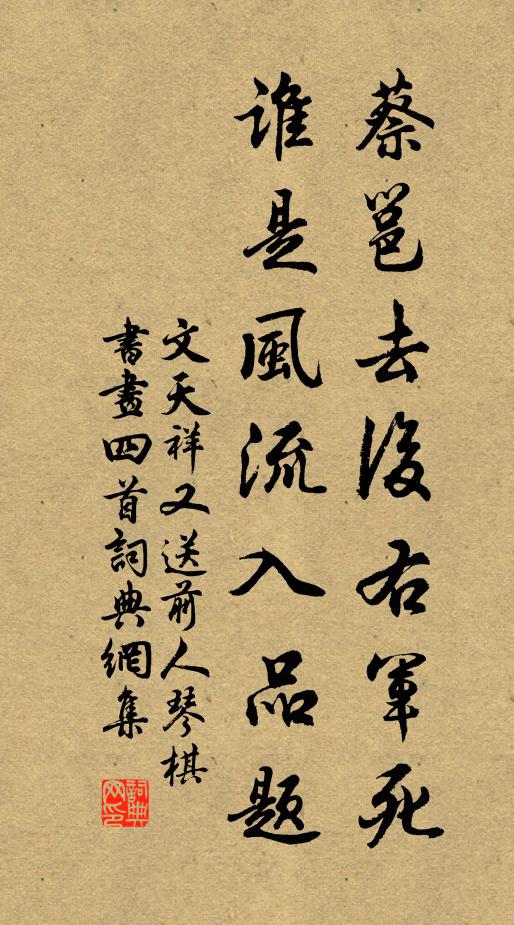 蔡邕去後右軍死
誰是風流入品題
文天祥又送前人琴棋
書畫四首詞典網集
詞典网印